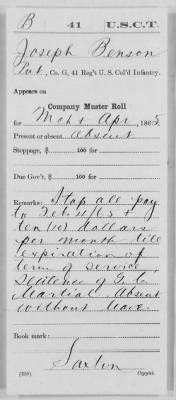 B 41 U.S.C.T.
Joseph Benson
Pvt., Co. G, 41 Reg't U. S. Col'd Infantry.
Appears on
Company Muster Roll
for Mch & Apr, 1865
Present or absent Absent
Stoppage, $ 100 for
Due Gov't, $ 100 for
Remarks: Stop all pay
to Feb 11/65 &
ten (10) dollars
per month till
expiration of
term of service,
Sentence of G. C.
Martial. Absent
without leave.
Book mark:
Saxton
(358) Copyist.